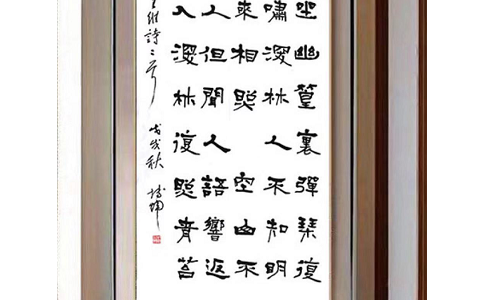 坐幽篁裏彈琴復
嘯深林人不知明
來相照 空山不
人但聞人語響返
入深林復照青苔
王維詩二首 戊戌秋 培坤